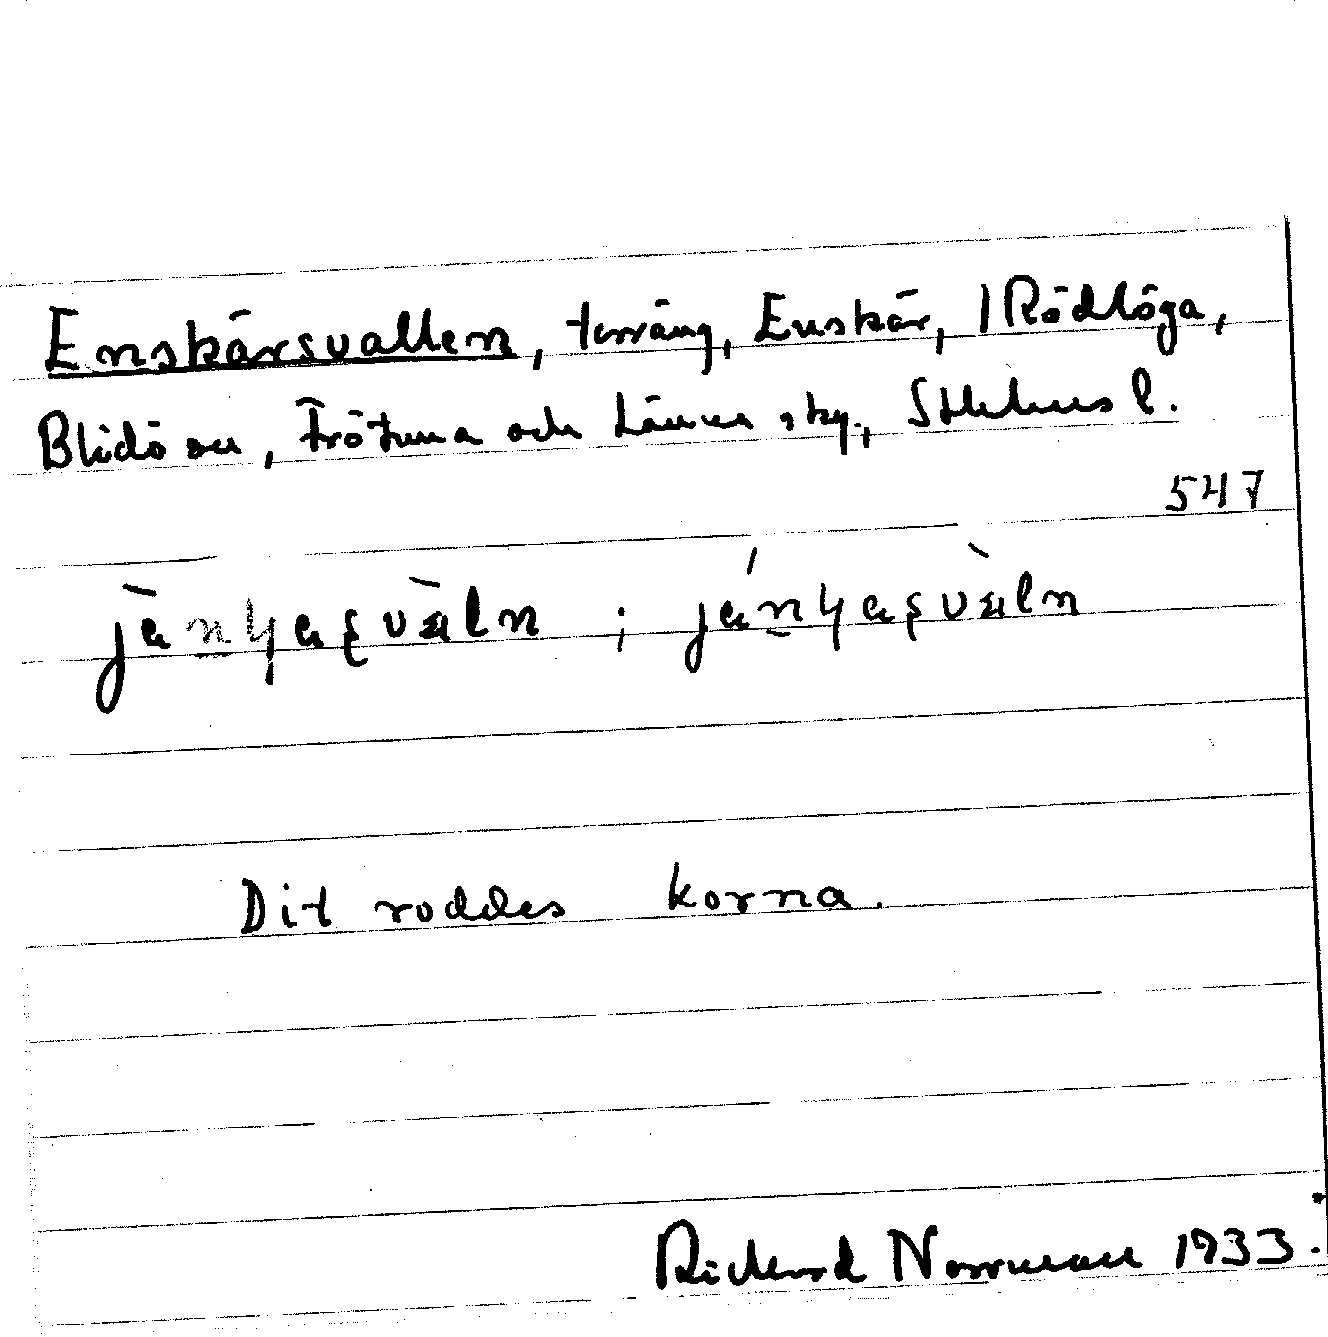 Enskärsvallen, terräng, Enskär, 1 Rödlöga,
Blidö sn, Frötuna och Länna skg., Sthlms l.
547
Dit roddes korna.
Rickard Norrman 1933.